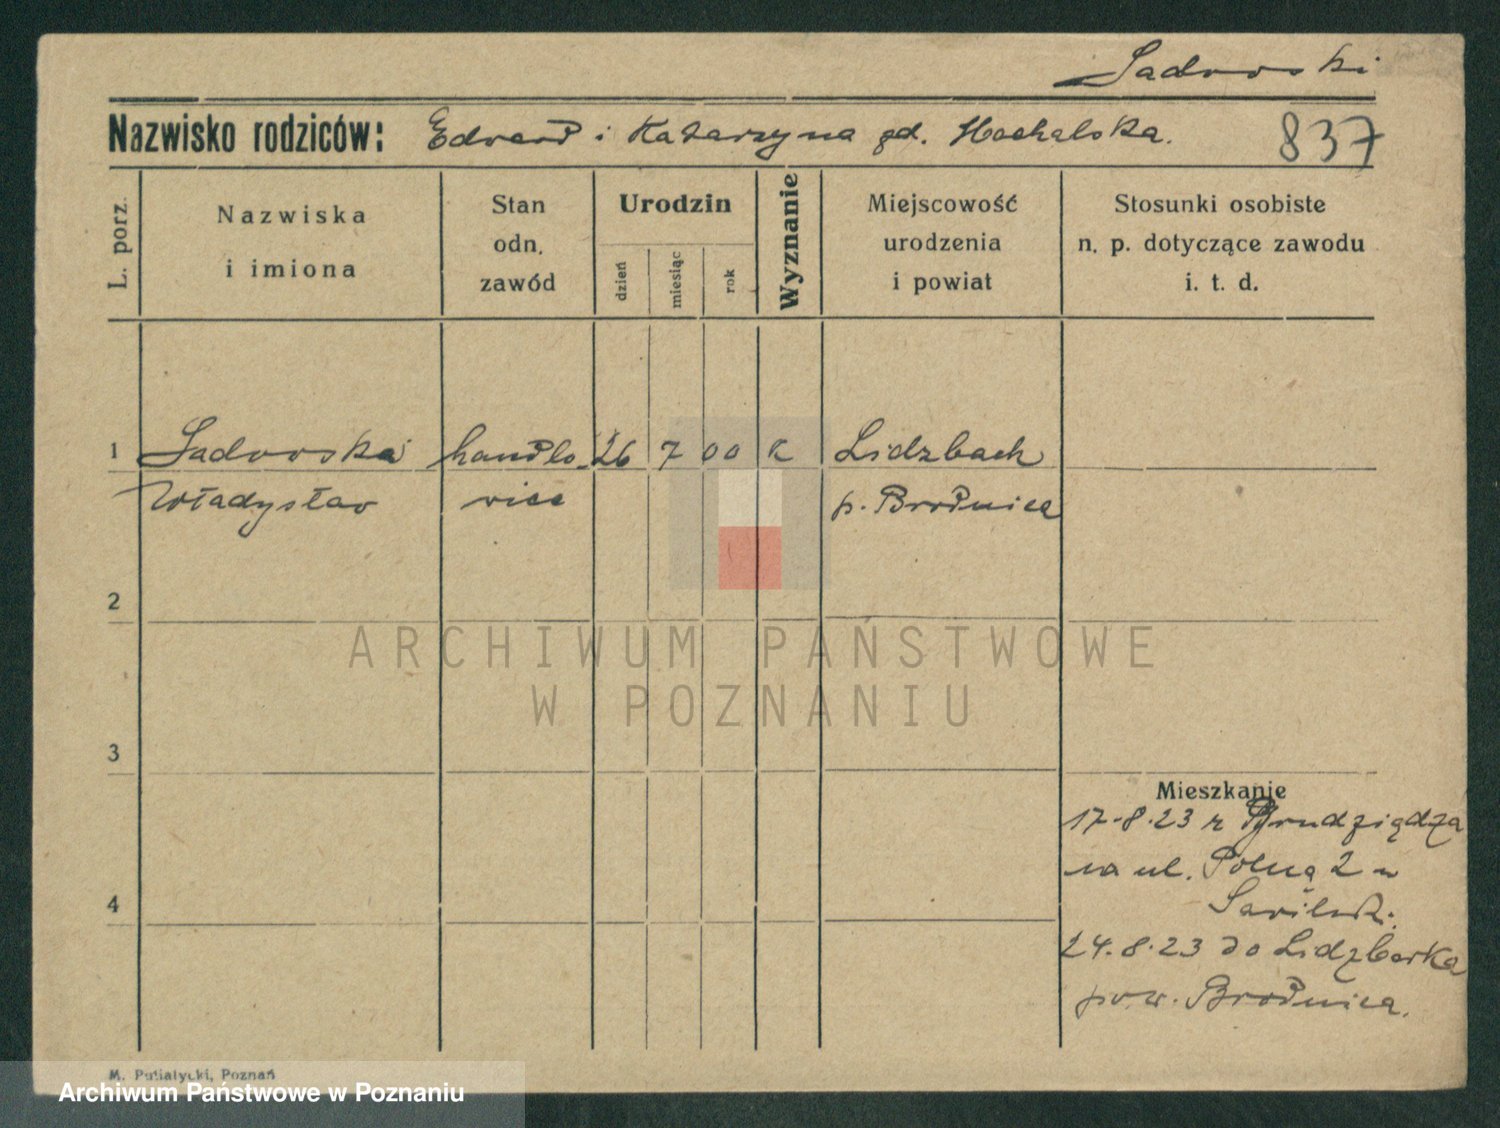 Sadowski
Nazwisko rodziców: Edward i Katarzyna zd. 837
L. porz.
Nazwiska
i imiona
Stan
odn.
zawód
Urodzin
dzień
miesiąc
rok
Wyznanie
Miejscowość
urodzenia
i powiat
Stosunki osobiste
n. p. dotyczące zawodu
i. t. d.
1 Sadowski handlo- 26 7 00 k Lidzbark
Władysław wiec p. Brodnica
2
ARCHIWUM PAŃSTWOWE
W POZNANIU
3
Mieszkanie
17.8.23 z Grudziądza
na ul. Polną 2 u
4
24.8.23 do Lidzbarka
pow. Brodnica.
M. Putiatycki, Poznań
Archiwum Państwowe w Poznaniu